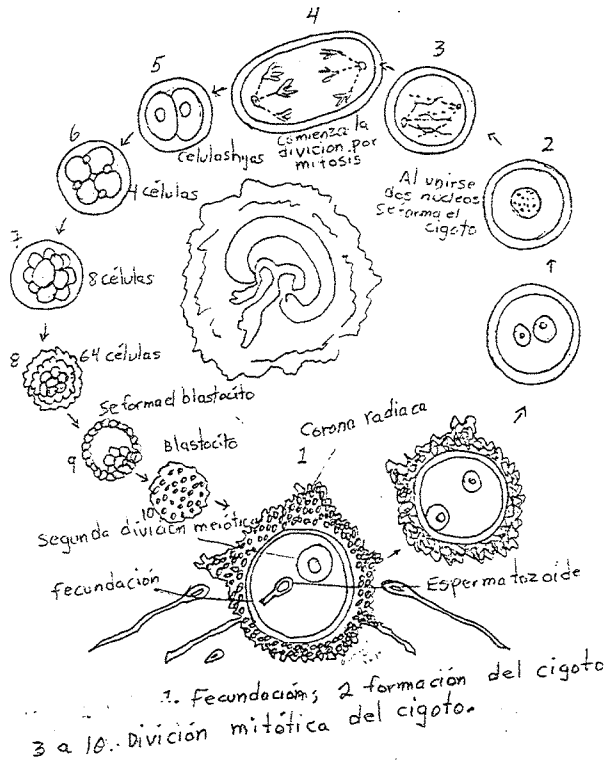 4
5
3
6
Comienza la
división por
mitosis
Celulashijas
2
Al unirse
dos núcleos
se forma el
cigoto
4 células
7
8 células
8
64 células
Se forma el blastocito
9
Blastocito
10
Corona radiaca
1
Segunda división meiótica
Fecundación
Espermatozoide
1. Fecundación; 2 formación del cigoto
3 a 10. División mitótica del cigoto.